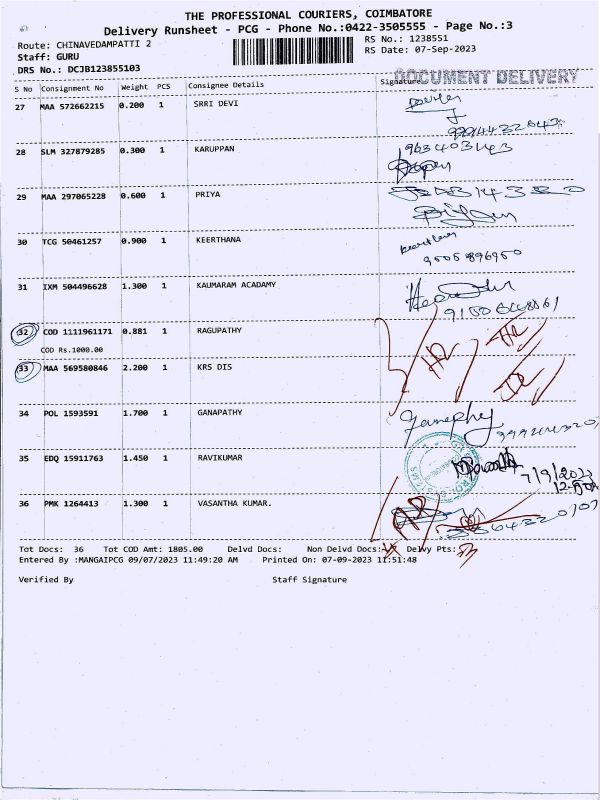 THE PROFESSIONAL COURIERS, COIMBATORE
Delivery Runsheet - PCG - Phone No.:0422-3505555 - Page No.:3
Route: CHINAVEDAMPATTI 2
RS No.: 1238551
Staff: GURU
RS Date: 07-Sep-2023
DRS No.: DCJB123855103
DOCUMENT DELIVERY
S No Consignment No Weight PCS Consignee Details Signature
27 MAA 572662215 0.200 1 SRRI DEVI
28 SLM 327879285 0.300 1 KARUPPAN
29 MAA 297065228 0.600 1 PRIYA
30 TCG 50461257 0.900 1 KEERTHANA
31 IXM 504496628 1.300 1 KAUMARAM ACADAMY
32 COD 1111961171 0.881 1 RAGUPATHY
COD Rs.1000.00
33 MAA 569580846 2.200 1 KRS DIS
34 POL 1593591 1.700 1 GANAPATHY
35 EDQ 15911763 1.450 1 RAVIKUMAR
36 PMK 1264413 1.300 1 VASANTHA KUMAR.
Tot Docs: 36 Tot COD Amt: 1805.00 Delvd Docs: Non Delvd Docs: Delvy Pts:
Entered By :MANGAIPCG 09/07/2023 11:49:20 AM Printed On: 07-09-2023 11:51:48
Verified By Staff Signature